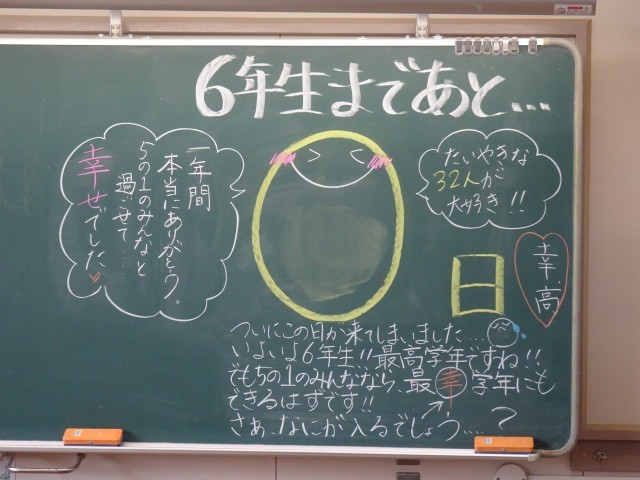 6年生まであと…
0日
たいやきな
32人が
大好き!!
幸高
一年間
本当にありがとう。
5の1のみんなと
過ごせて…
幸せでした♡
ついにこの日が来てしまいました…
いよいよ6年生!!最高学年ですね!!
でも5の1のみんななら、最幸学年にも
できるはずです!!
さぁ、なにが入るでしょう…?